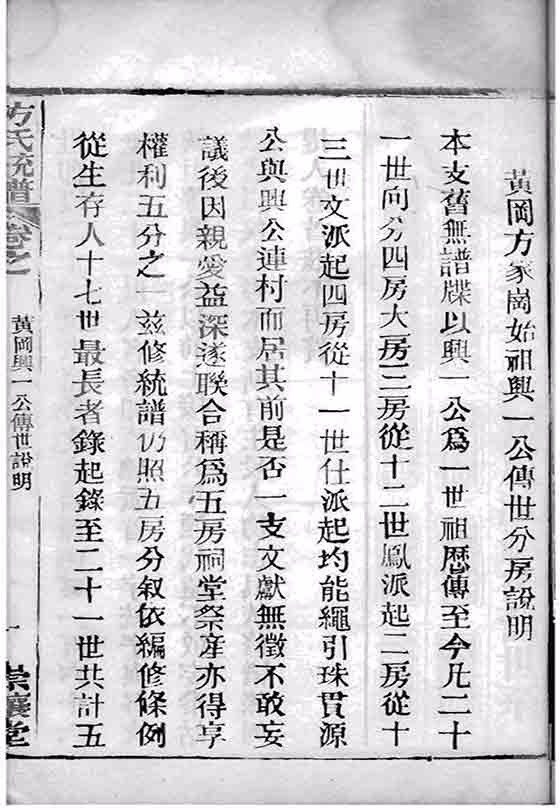 黃岡方家崗始祖興一公傳世分房說明
本支舊無譜牒以興一公爲一世祖歷傳至今凡二十
一世向分四房大房三房從十二世鳳派起二房從十
三世文派起四房從十一世仕派起均能繩引珠貫源
公與興公連村而居其前是否一支文獻無徵不敢妄
議後因親愛益深遂聯合稱爲五房祠堂祭產亦得享
權利五分之一茲修統譜仍照五房分叙依編修條例
從生存人十七世最長者錄起錄至二十一世共計五
方氏統譜
卷之一
黃岡興一公傳世說明
一
崇讓堂